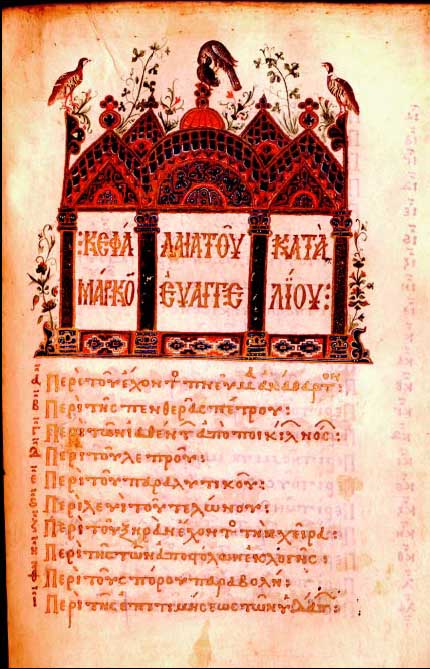 :ΚΕΦΑΛΑΙΑ ΤΟΥ ΚΑΤΑ
ΜΑΡΚΟ ΕΥΑΓΓΕΛΙΟΥ:
Περὶ τοῦ ἔχοντος πνεῦμα ἀκάθαρτον
Περὶ τῆς πενθερᾶς Πέτρου:
Περὶ τῶν ἰαθέντων ἀπὸ ποικίλης νόσου:
Περὶ τοῦ λεπροῦ:
Περὶ τοῦ παραλυτικοῦ:
Περὶ Λευὶ τοῦ τελώνου:
Περὶ τοῦ ξηρὰν ἔχοντος τὴν χεῖρα:
Περὶ τῆς τῶν ἀποστόλων ἐκλογῆς:
Περὶ τοῦ σπόρου παραβολή:
Περὶ τῆς ἐπιτιμήσεως τῶν ὑδάτων: